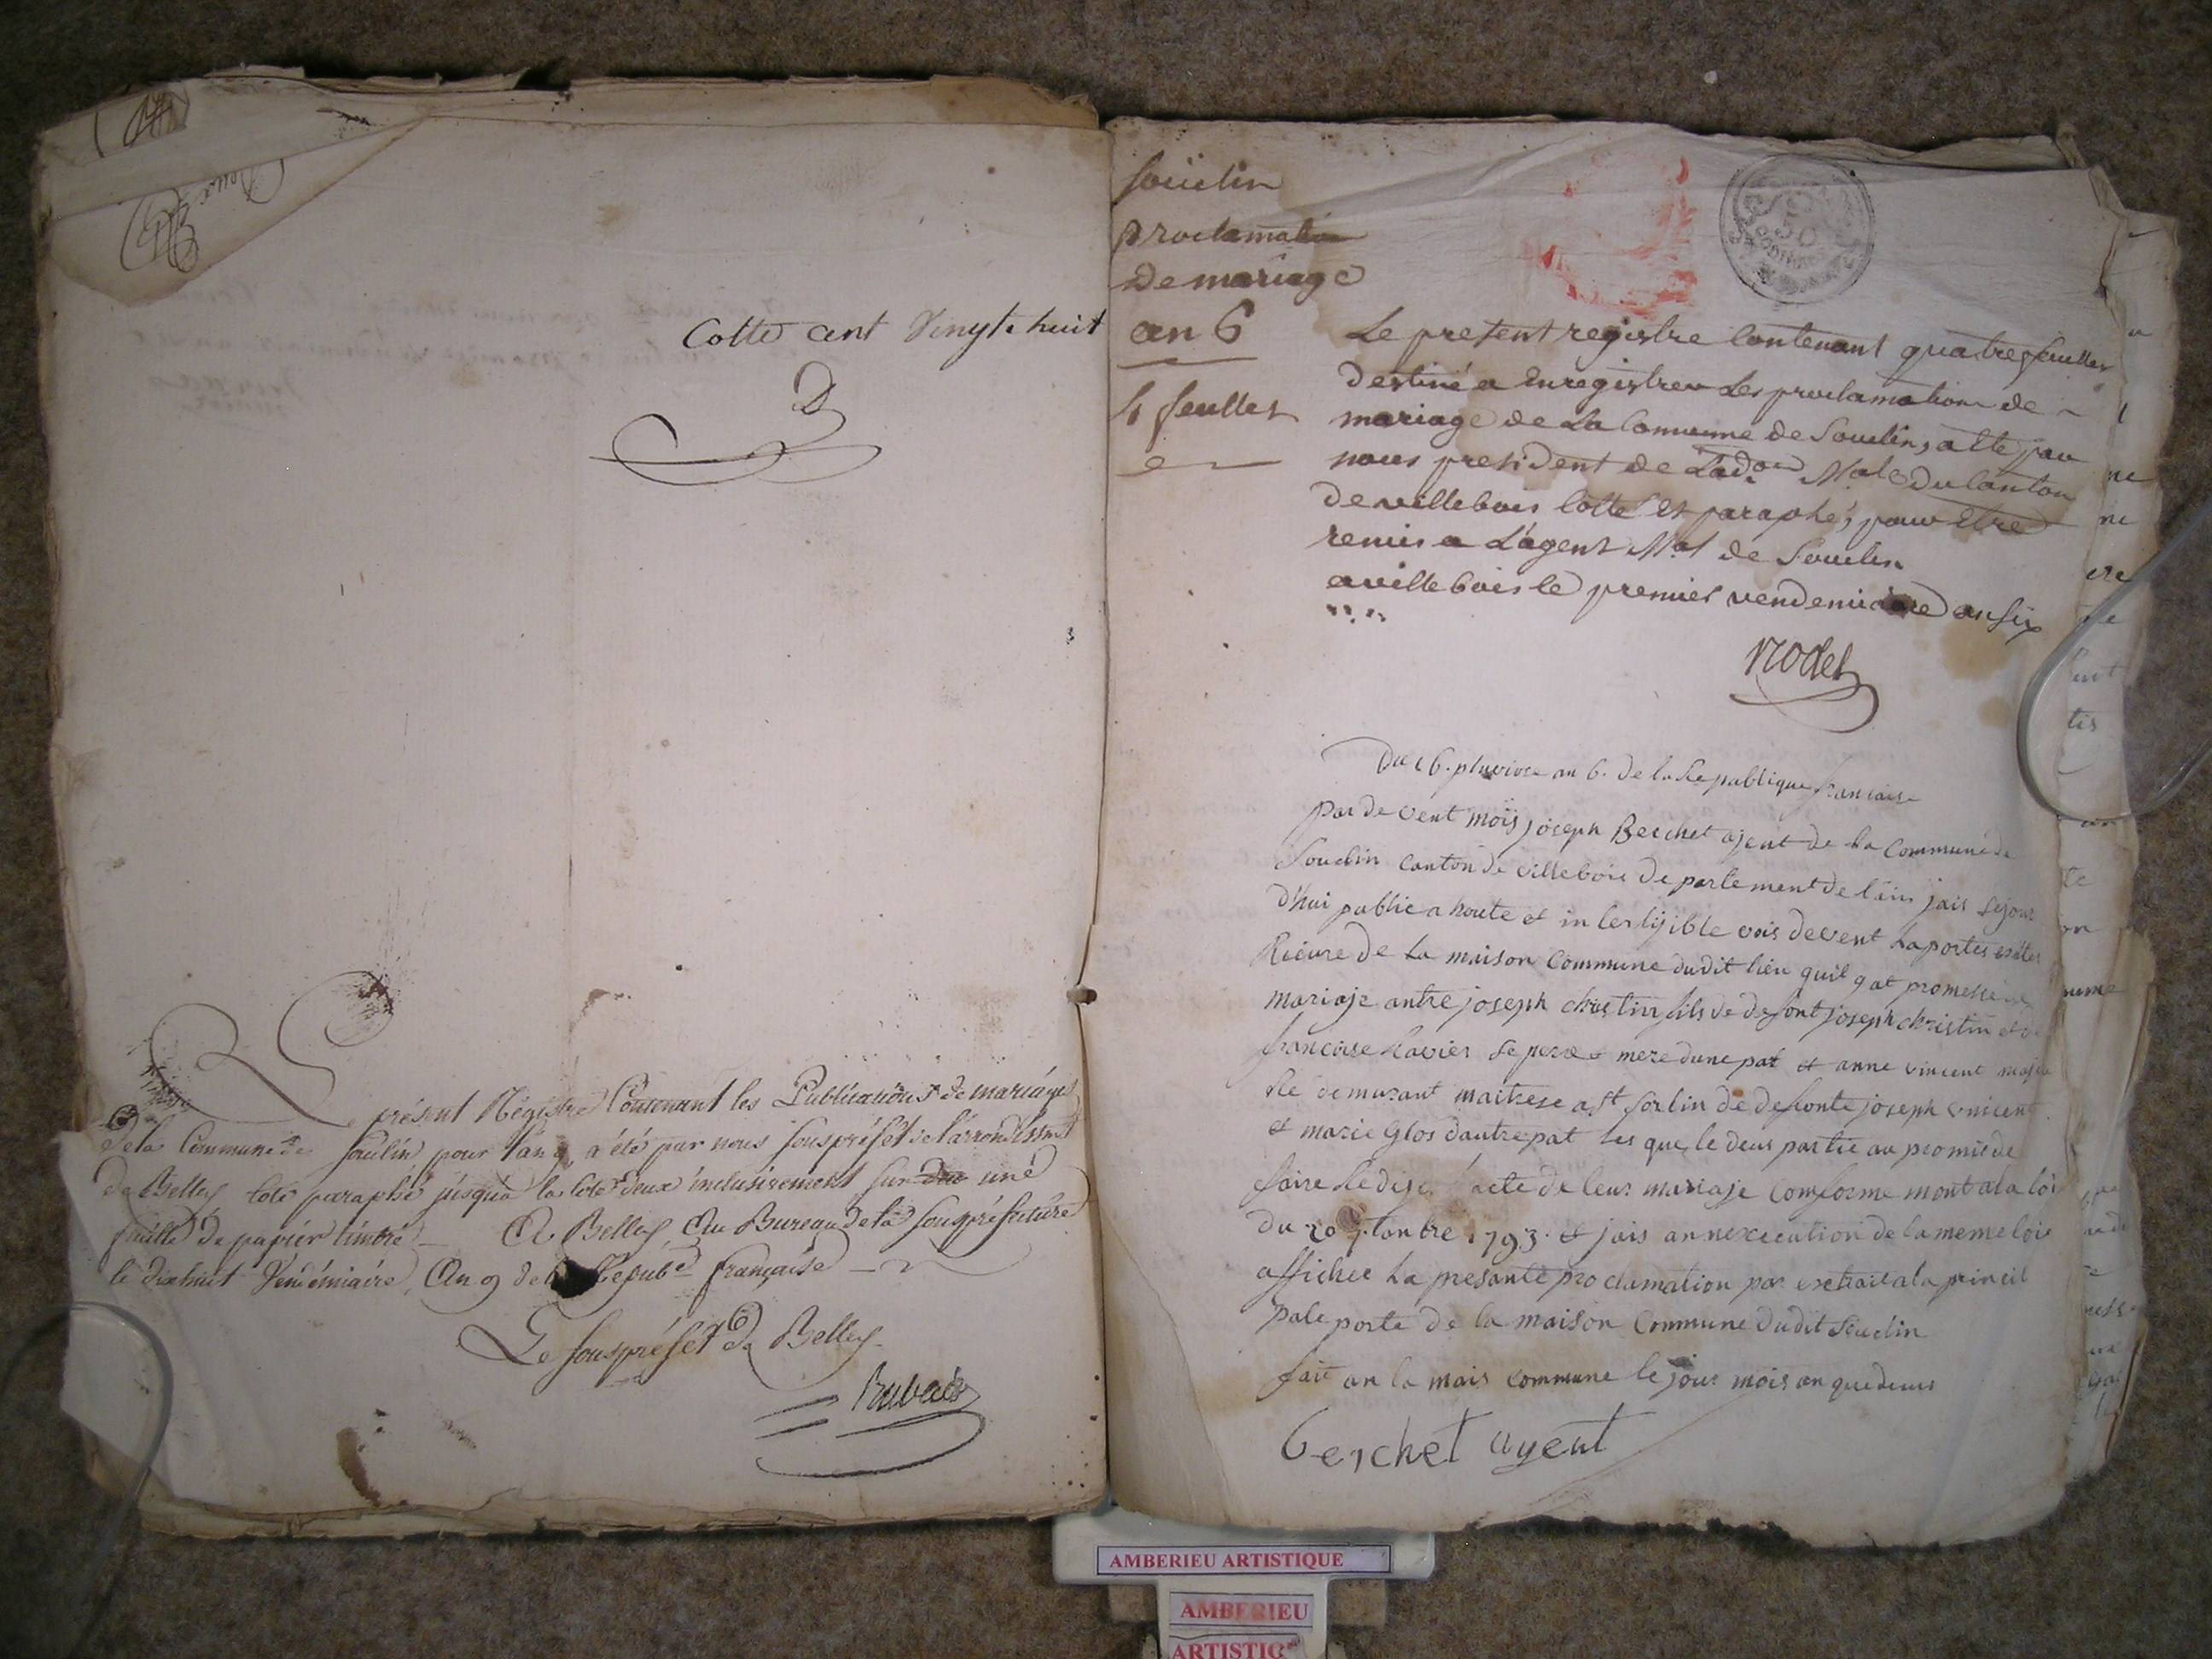 Cotté cent vingt huit
présent Régistre Contenant les Publications de mariages
de la Commune de Souclin pour l'an 9, a été par nous souspréfét de l'arrondissmt
de Belley coté paraphé jusqu'a la cote deux inclusivement sur une
feuille de papier timbré A Belley, Au Bureau de la souspréfecture
le dixhuit Vendémiaire, An 9 de la Répub française
Le souspréfét de Belley
Souclin
proclamation
de mariage
an 6
4 feulles
Le present registre contenant quatre feulles
destiné a enregistrer les proclamations de
mariage de la commune de Souclin, a ete par
nous president de L'adon Male du canton
de villebois cotté et paraphé, pour etre
remis a L'agent Mal de Souclin
a villebois le premier vendemiaire an six
Rodet
Du 16. pluviose an 6. de la Republique francaise
par de vent moÿ joseph Berchet ajent de la Commune de
Souclin canton de villebois de partement de l'ain jais sejour
d'hui publie a houte et in terlijible vois devent la portes exte
Rieure de la maison Commune dudit lieu quil y at promesse de
mariaje antre joseph christin fils de defont joseph christin et de
francoise Ravier se pere et mere dune pat et anne vincent maje
Re demurant maitrese a st sorlin de defonte joseph vincent
et marie Glos dautre pat les que le deus partie au promis de
faire Redije acte de leur mariaje comforme mont a la loi
du 20 7tanbre 1793. et jais an nexecution de la meme loie
affichee la presante proclamation par extrait a la princi
pale porte de la maison Commune dudit Souclin
fait an la mais commune le jour mois an que deus
berchet agent
AMBERIEU ARTISTIQUE
AMBERIEU